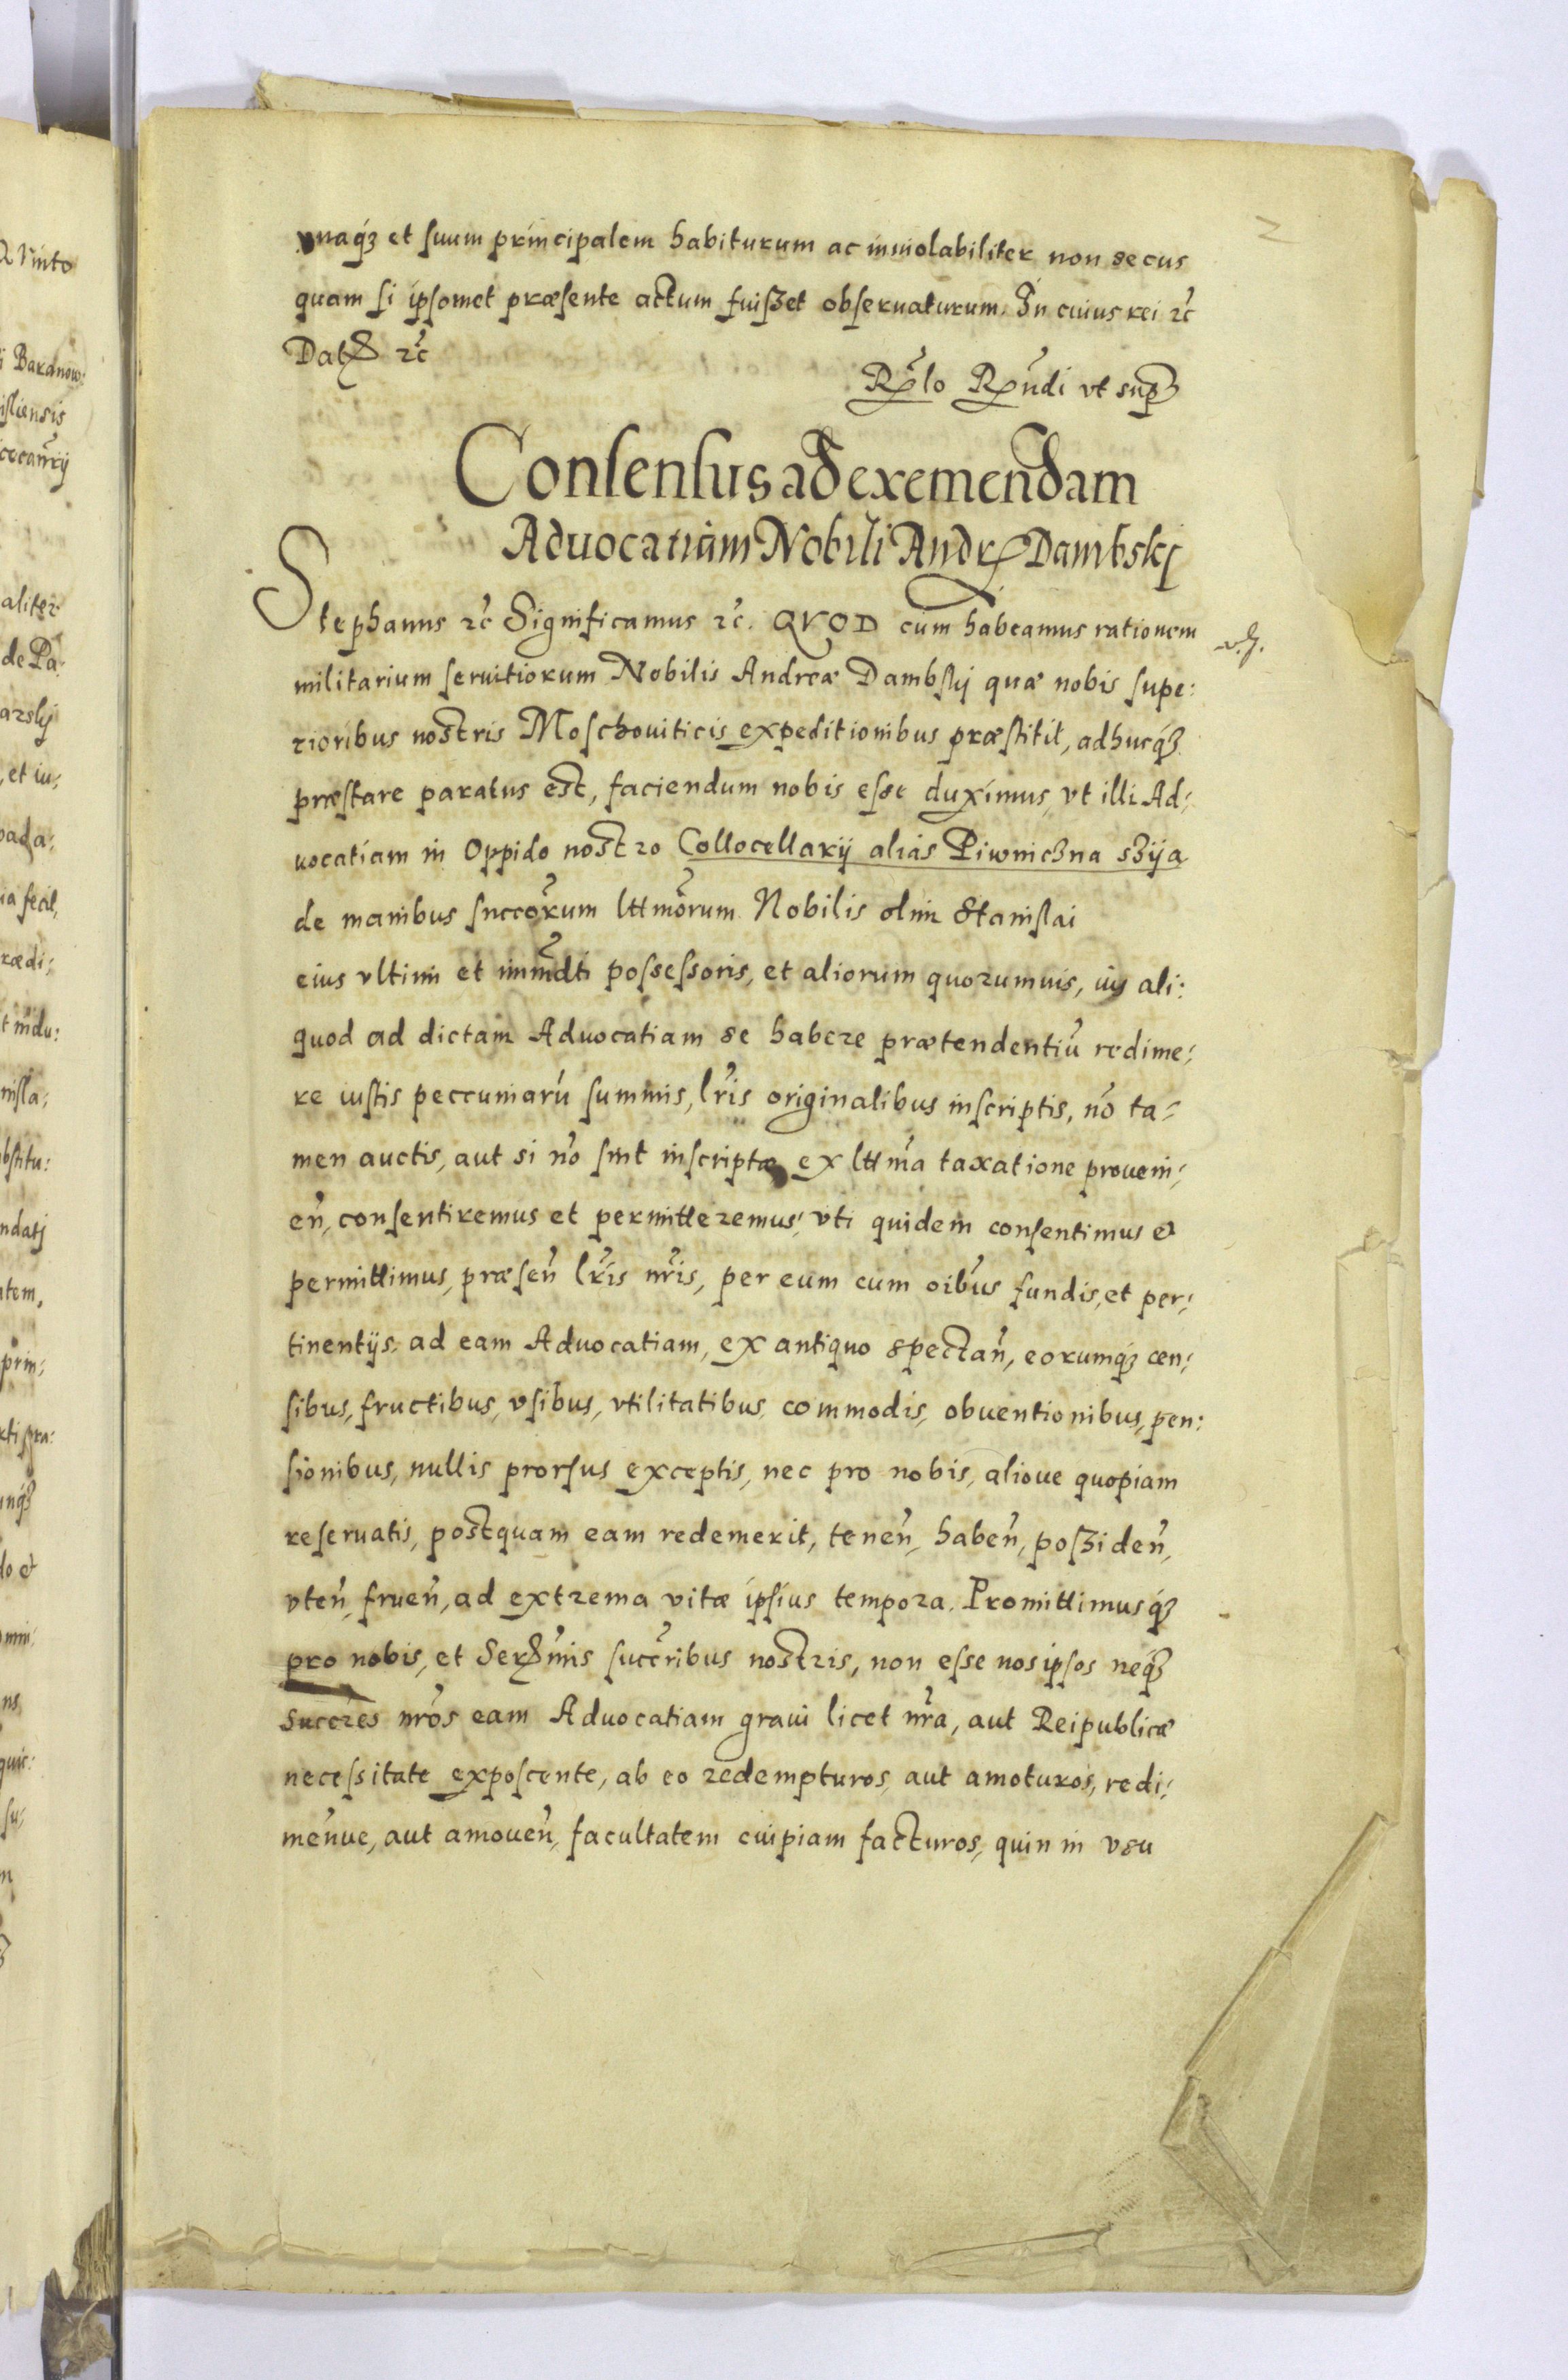 2
vnaqꝫ et suum principalem habiturum ac inuiolabiliter non secus
quam si ipsomet præsente actum fuisset obseruaturum. In cuius rei ꝛc̃
Dat ꝛc̃
Rlo Rundi vt sup
Consensus ad exemendam
Aduocatiam Nobili Andr Dambskj
Stephanus ꝛc̃ Significamus ꝛc̃. QVOD cum habeamus rationem
militarium seruitiorum Nobilis Andreæ Dambskj quæ nobis supe:
rioribus nostris Moschouiticis expeditionibus præstitit, adhucqꝫ
præstare paratus est, faciendum nobis esse duximus, vt illi Ad:
uocatiam in Oppido nostro Collocellarij aliàs Piwniczna szija
de manibus succõrum lttmõrum Nobilis olim Stanislai
eius vltimi et immdti possessoris, et aliorum quorumuis, ius ali:
quod ad dictam Aduocatiam se habere prætendentiũ redime:
re iustis peccuniarũ summis, lr̃is originalibus inscriptis, nõ ta:
men auctis, aut si nõ sint inscriptæ ex lttma taxatione proueni:
eñ, consentiremus et permitteremus, vti quidem consentimus et
permittimus, præseñ lr̃is nr̃is, per eum cum oĩbus fundis, et per:
tinentijs, ad eam Aduocatiam, ex antiquo spectañ, eorumqꝫ cen:
sibus, fructibus, vsibus, vtilitatibus, commodis, obuentionibus, pen:
sionibus, nullis prorsus exceptis, nec pro nobis, alioue quopiam
reseruatis, postquam eam redemerit, teneñ, habeñ, possideñ,
vteñ, frueñ, ad extrema vitæ ipsius tempora. Promittimusqꝫ
pro nobis, et Sermis succribus nostris, non esse nos ipsos neqꝫ
Succres nr̃os eam Aduocatiam graui licet nr̃a, aut Reipublicæ
necessitate exposcente, ab eo redempturos, aut amoturos, redi:
meñue, aut amoueñ, facultatem cuipiam facturos, quin in vsu